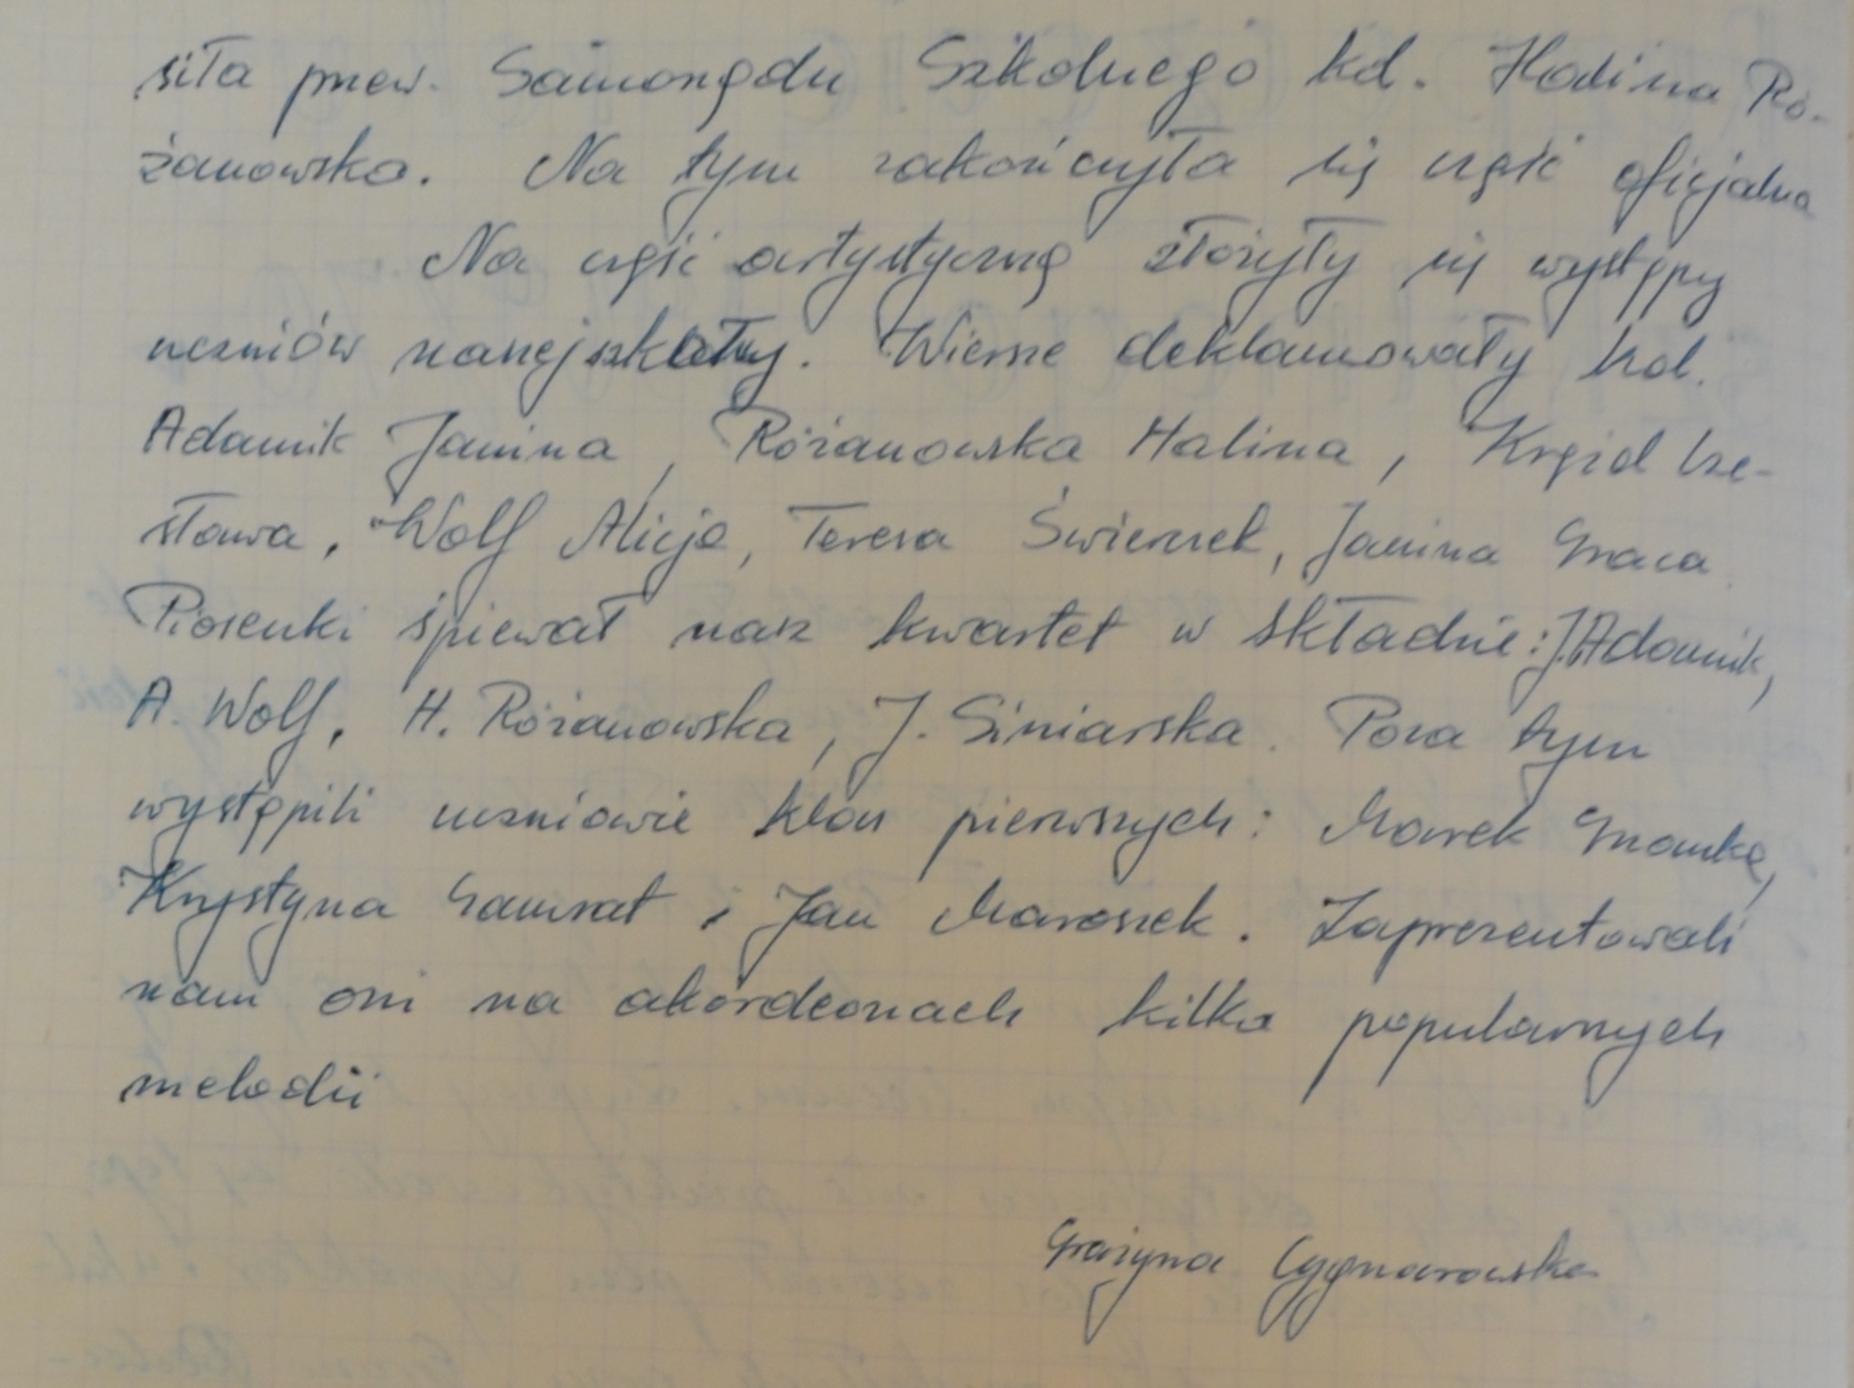 siła przew. Samorządu Szkolnego kol. Halina Ró-
żanowska. Na tym zakończyła się część oficjalna
Na część artystyczną złożyły się występy
uczniów naszej szkoły. Wiersze deklamowały kol.
Adamik Janina, Różanowska Halina, Krężel Cze-
sława, Wolf Alicja, Teresa Świerszek, Janina Graca
Piosenki śpiewał nasz kwartet w składzie: J. Adamik,
A. Wolf, H. Różanowska, J. Siniarska. Poza tym
wystąpili uczniowie klas pierwszych: Marek
Krystyna Gamrat i Jan Maroszek. Zaprezentowali
nam oni na akordeonach kilka popularnych
melodii
Grażyna